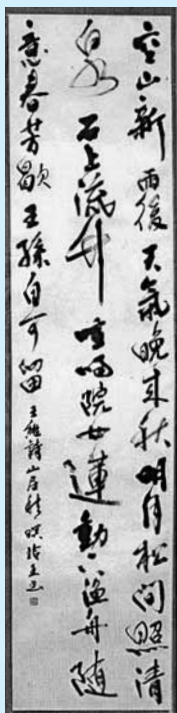 空山新雨後天氣晚來秋明月松間照清
泉石上流竹喧歸浣女蓮動下漁舟隨
意春芳歇王孫自可留王維詩山居秋暝